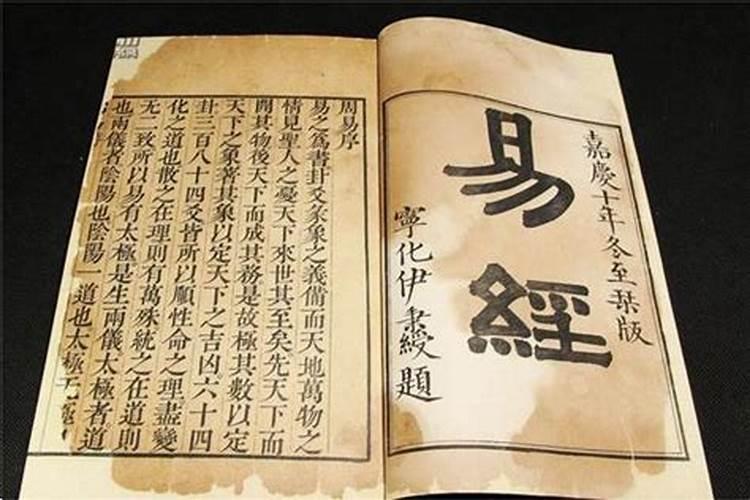 嘉慶十年冬至琹版
易經
寧化伊秉綬題
周易序
易之爲書卦爻彖象之義備而天地萬物之
情見聖人之憂天下來世其至矣先天下而
開其物後天下而成其務是故極其數以定
天下之象著其象以定天下之吉凶六十四
卦三百八十四爻皆所以順性命之理盡變
化之道也散之在理則有萬殊統之在道則
无二致所以易有太極是生兩儀太極者道
也兩儀者陰陽也陰陽一道也太極无極也